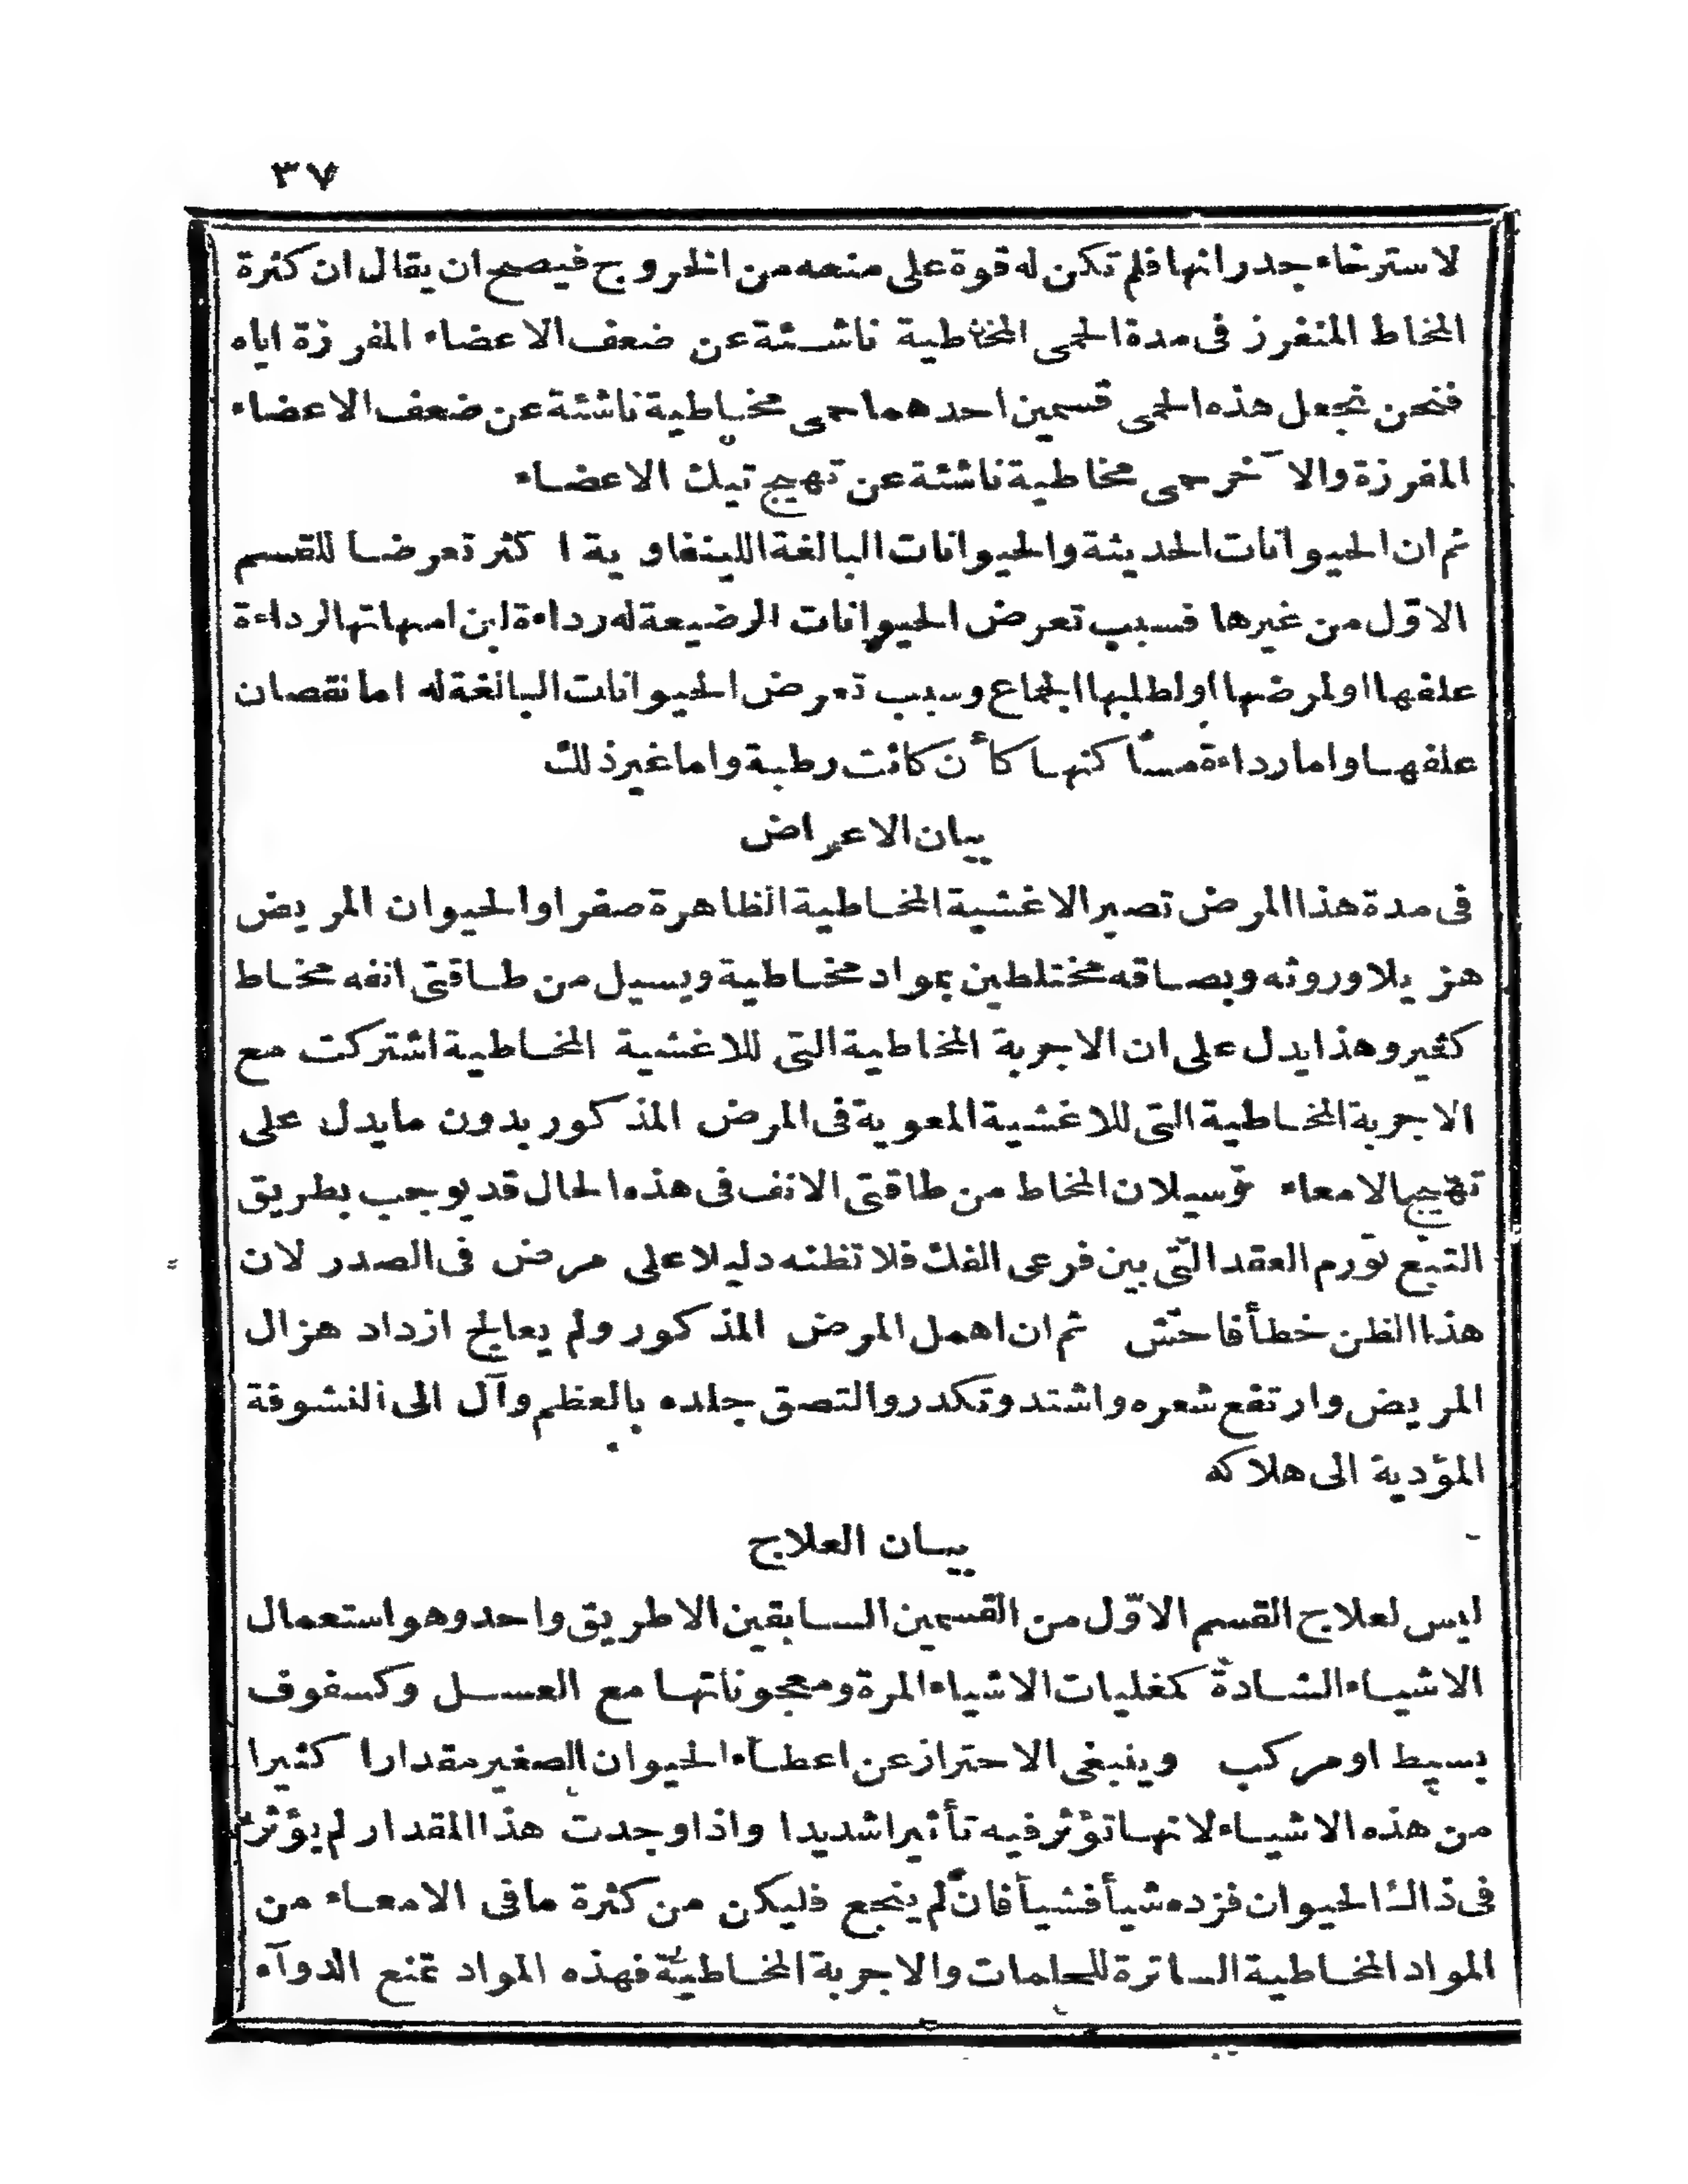 ٣٧
لاسترخاء جدرانها فلم تكن له قوة على منعه من الخروج فيصح ان يقال ان كثرة
المخاط المنفرز فى مدة الحمى المخاطية ناشئة عن ضعف الاعضاء المفرزة اياه
فنحن نجعل هذه الحمى قسمين احدهما حمى مخاطية ناشئة عن ضعف الاعضاء
المفرزة والآخر حمى مخاطية ناشئة عن تهيج تيك الاعضاء
ثم ان الحيوانات الحديثة والحيوانات البالغة اللينفاوية اكثر تعرضا للقسم
الاوّل من غيرها فسبب تعرض الحيوانات الرضيعة له رداءة لبن امهاتها لرداءة
علفها او لمرضها او لطلبها الجماع وسبب تعرض الحيوانات البالغة له اما نقصان
علفها واما رداءة مساكنها كأن كانت رطبة واما غير ذلك
بيان الاعراض
فى مدة هذا المرض تصير الاغشية المخاطية الظاهرة صفرا والحيوان المريض
هزيلا وروثه وبصاقه مختلطين بمواد مخاطية ويسيل من طاقتى انفه مخاط
كثير وهذا يدل على ان الاجربة المخاطية التى للاغشية المخاطية اشتركت مع
الاجربة المخاطية التى للاغشية المعوية فى المرض المذكور بدون ما يدل على
تهّيج الامعاء وسيلان المخاط من طاقتى الانف فى هذه الحال قد يوجب بطريق
التبع تورم العقد التى بين فرعى الفك فلا تظنه دليلا على مرض فى الصدر لان
هذا الظن خطأ فاحش ثم ان اهمل المرض المذكور ولم يعالج ازداد هزال
المريض وارتفع شعره واشتد وتكدر والتصق جلده بالعظم وآل الى النشوفة
المؤدية الى هلاكه
بيان العلاج
ليس لعلاج القسم الاوّل من القسمين السابقين الا طريق واحد وهو استعمال
الاشياء الشادة كمغليات الاشياء المرة ومعجوناتها مع العسل وكسفوف
بسيط او مركب وينبغى الاحتراز عن اعطاء الحيوان الصغير مقدارا كثيرا
من هذه الاشياء لانها تؤثر فيه تأثيرا شديدا واذا وجدت هذا المقدار لم يؤثر
فى ذاك الحيوان فزده شيأ فشيأ فان لم ينجع فليكن من كثرة ما فى الامعاء من
المواد المخاطية الساترة للحلمات والاجربة المخاطية فهذه المواد تمنع الدوآء